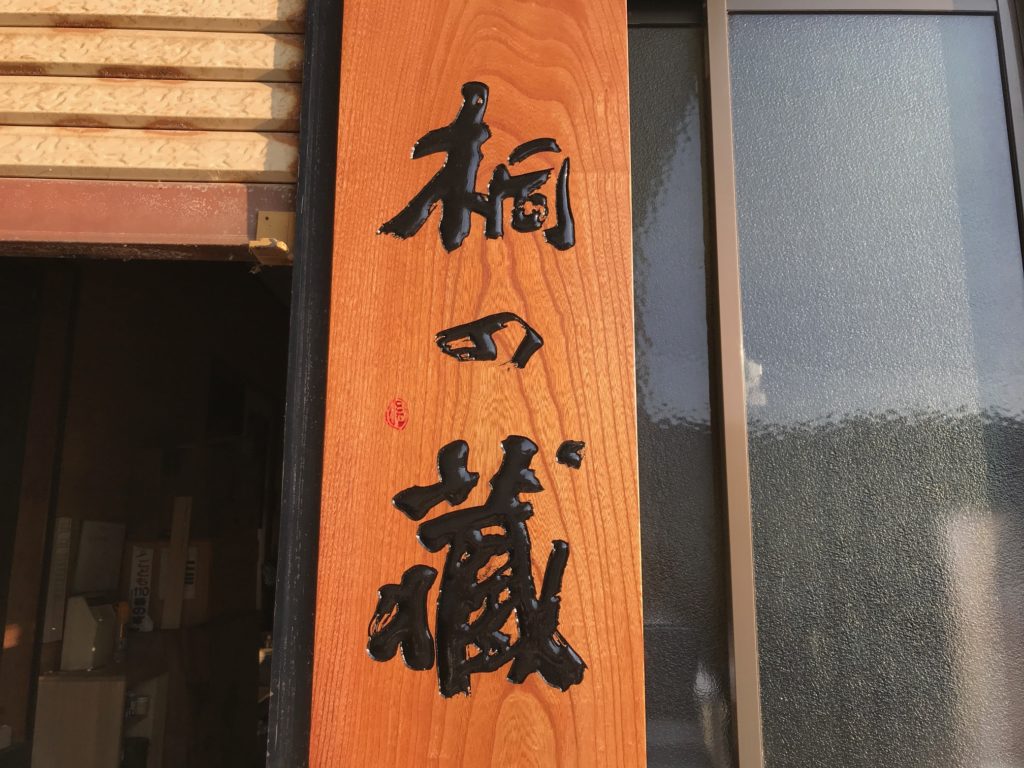 桐の蔵